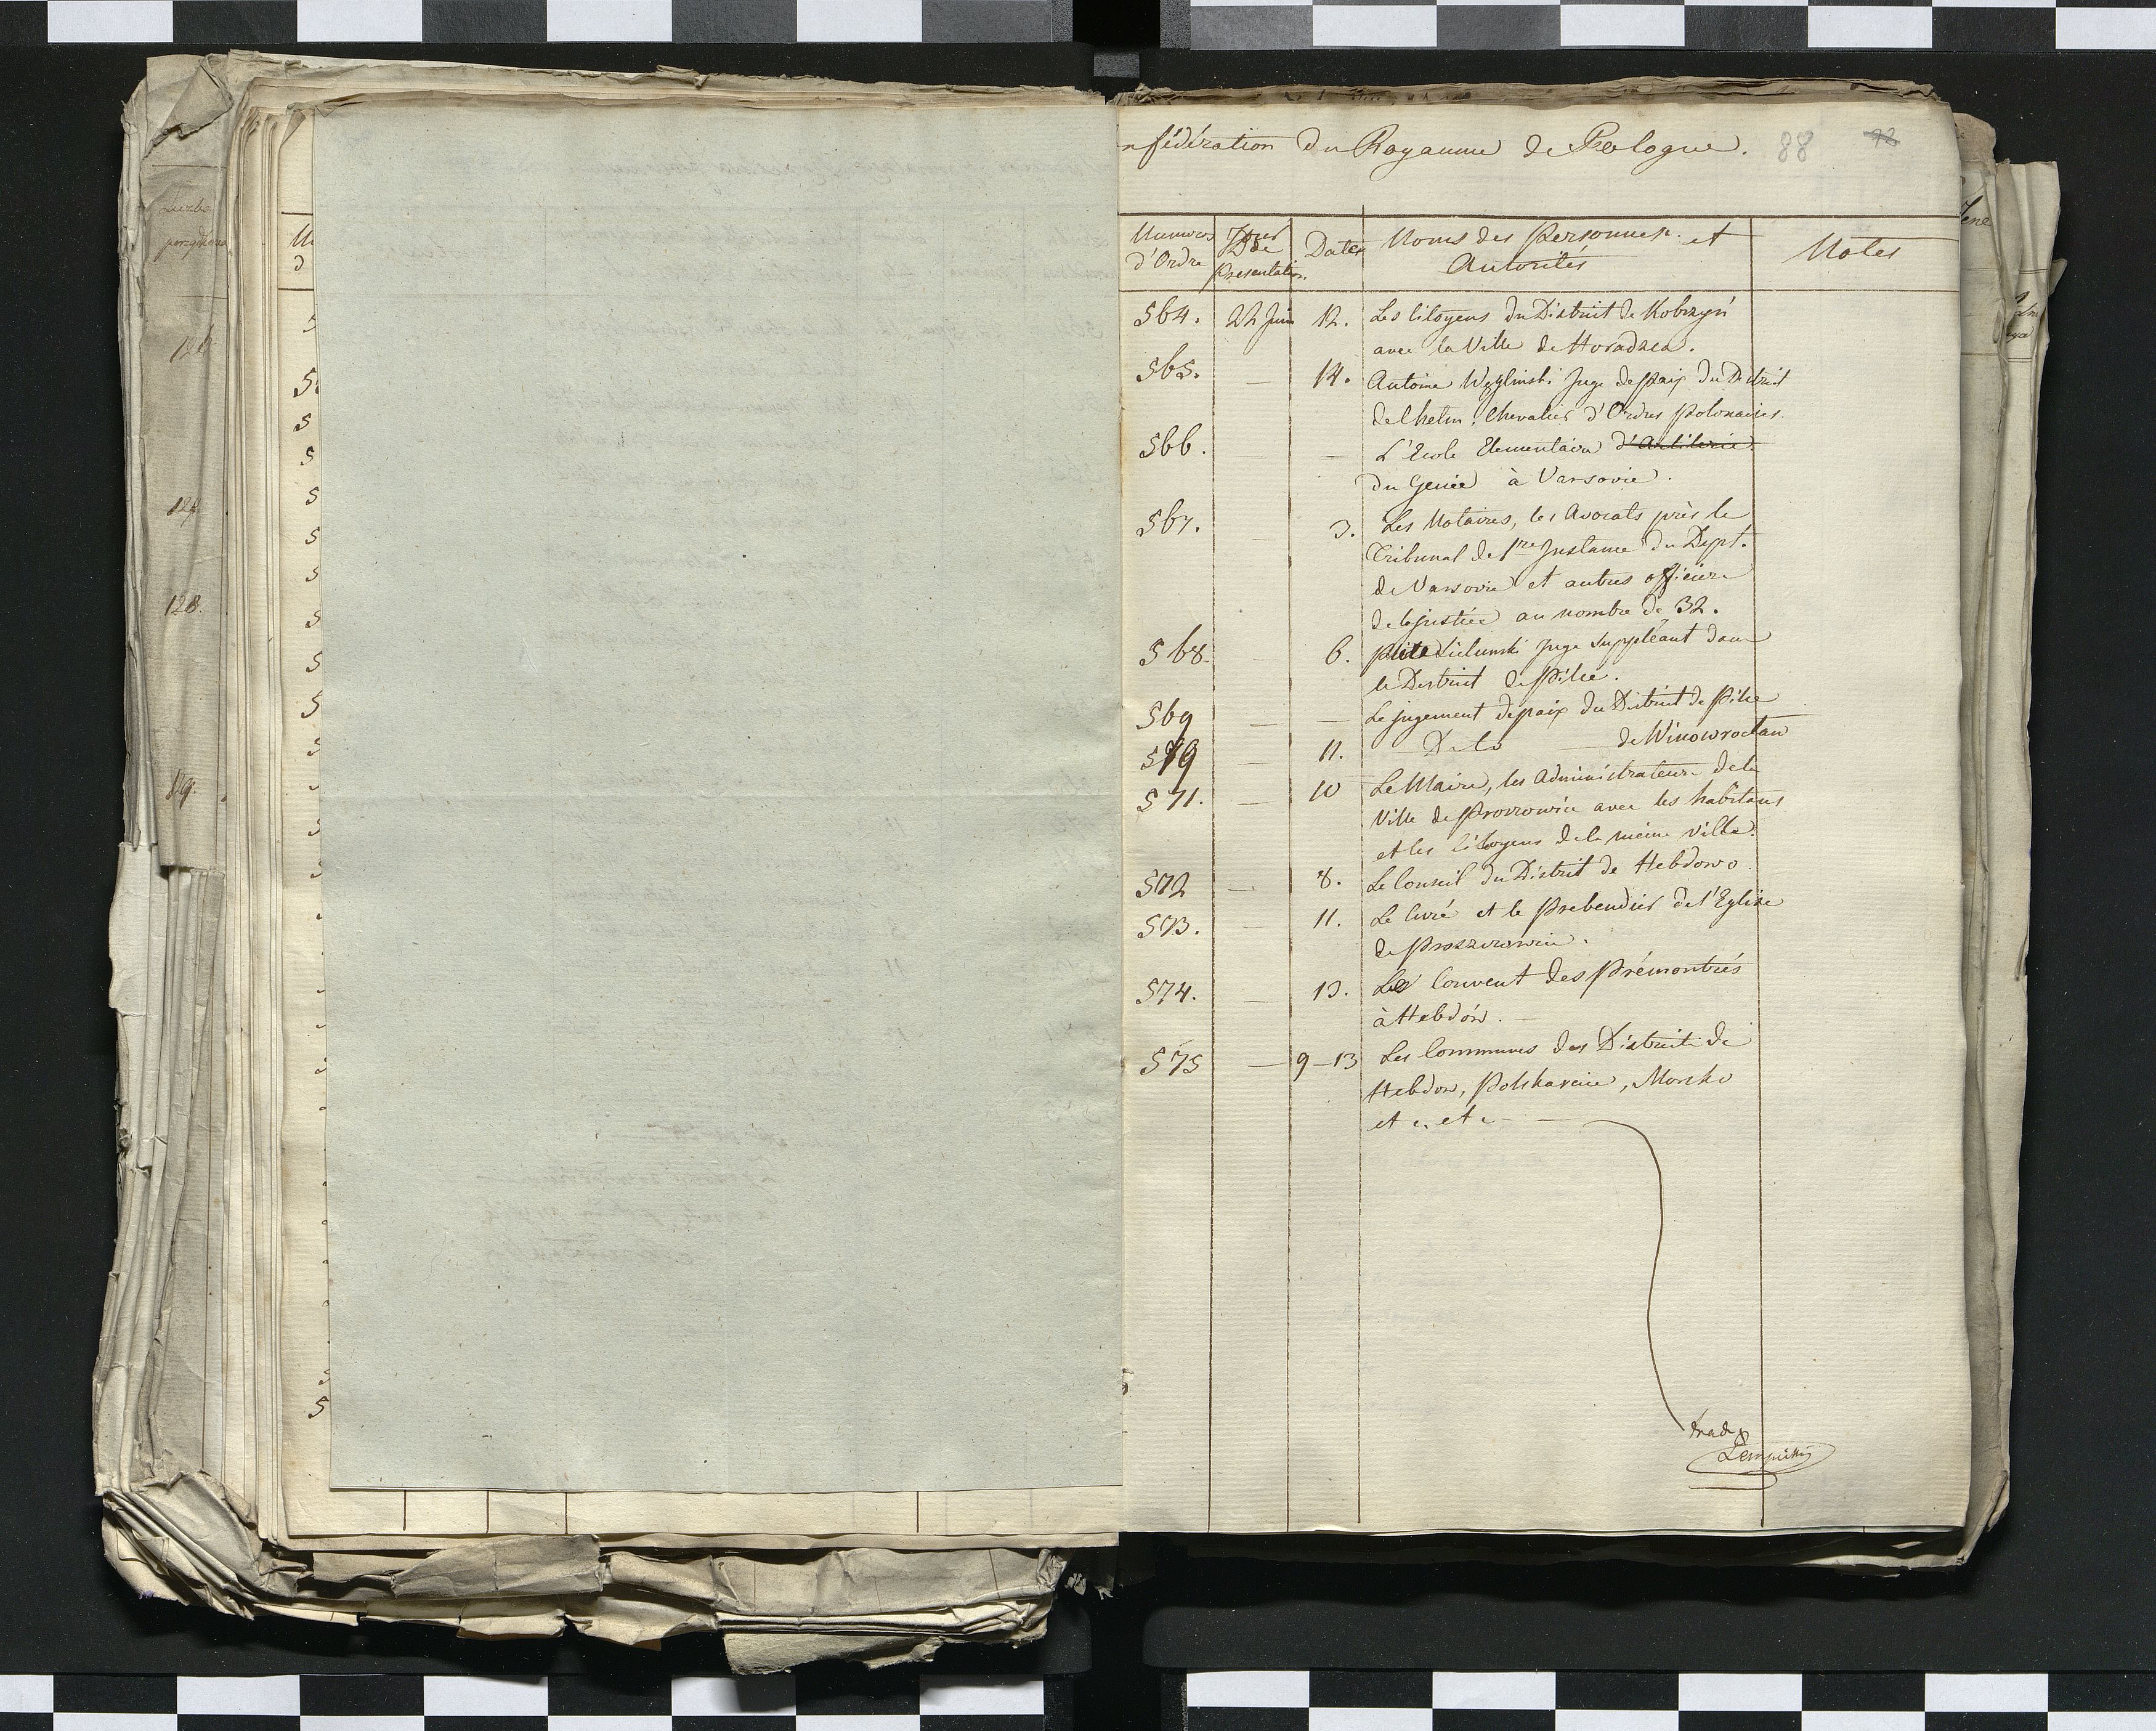 nfédération du Royaume de Pologne. 88
Numeros d'Ordre
Jour de Presentation
Dates
Noms des Personnes et Autorités
Notes
564. 22 Juin 12. Les Citoyens du District de Kobrzyń
avec la Ville de Horadzea.
565. — 14. Antoine Węgliński Juge de paix du District
de Chelm, Chevalier d'Ordres polonaises.
566. — — L'Ecole Elementaire d'Artilerie
du Genie à Varsovie.
567. — 3. Les Notaires, les Avocats près le
Tribunal de 1re Instance du Dept.
de Varsovie et autres officiers
de la justice au nombre de 32.
568. — 6. Juge Suppléant dans
le District de Pilce.
569 — — Le jugement de paix du District de Pilce
570 — 11. Deto — de Winowrocław
571. — 10 Le Maire, les Administrateurs de la
Ville de Prorrowice avec les habitans
et les Citoyens de la meme ville.
572 — 8. Le Conseil du District de Hebdowo.
573. — 11. Le Curé et le Prebendier de l'Eglise
de Proszowowice.
574. — 13. Le Couvent des Prémontrés
à Hebdów. —
575 — 9–13 Les Communes des Districts de
Hebdow, Polskavcine, Morsko
etc. etc. —
trad
Lempicki
Liczba
porządkowa
127.
128.